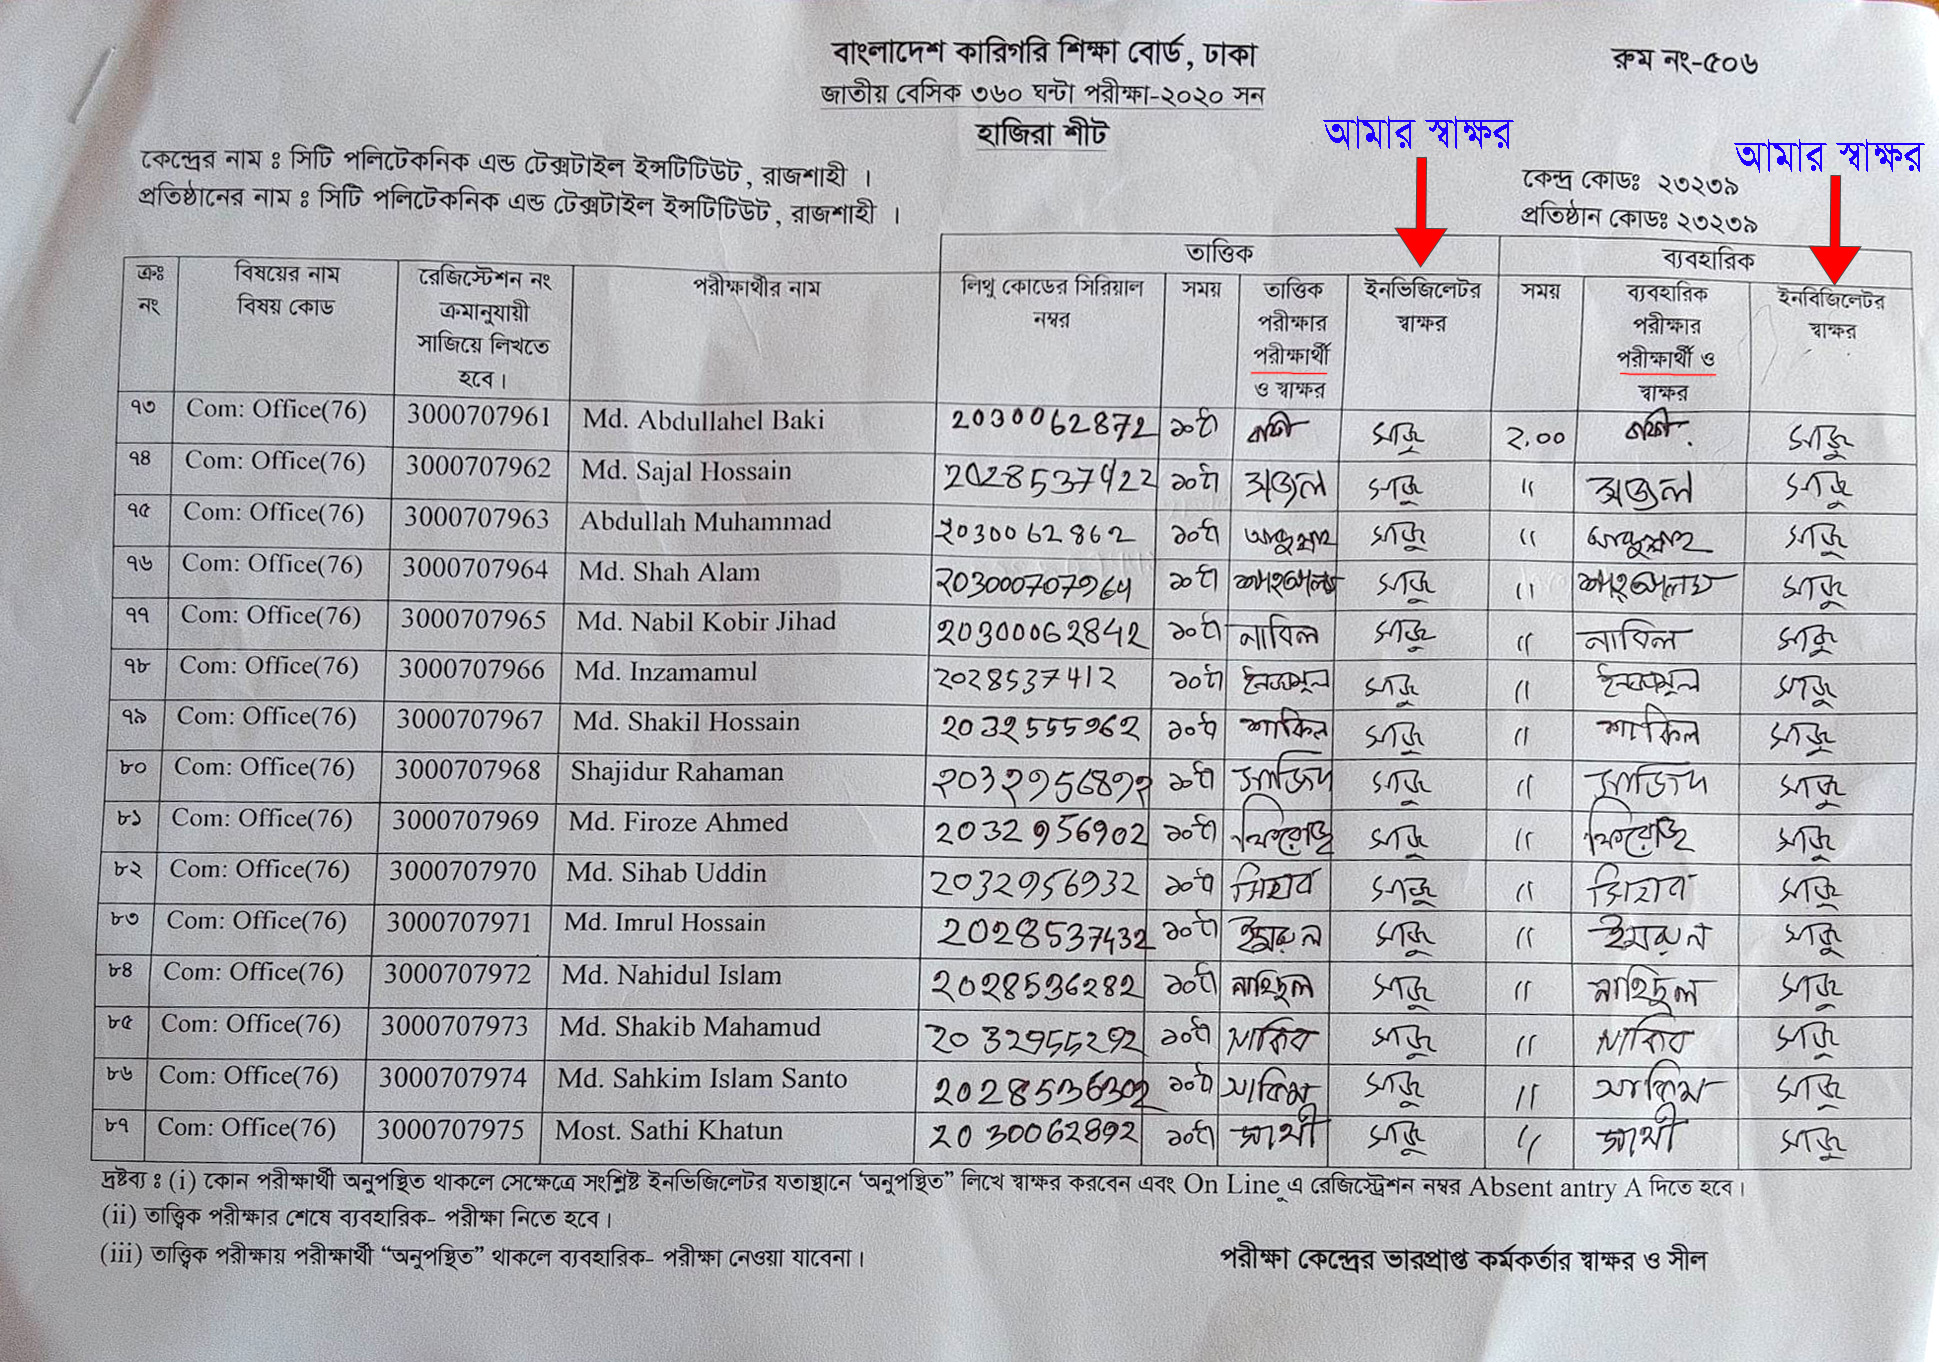 বাংলাদেশ কারিগরি শিক্ষা বোর্ড, ঢাকা
রুম নং-৫০৬
জাতীয় বেসিক ৩৬০ ঘন্টা পরীক্ষা-২০২০ সন
হাজিরা শীট
আমার স্বাক্ষর
আমার স্বাক্ষর
কেন্দ্রের নাম ঃ সিটি পলিটেকনিক এন্ড টেক্সটাইল ইন্সটিটিউট, রাজশাহী ।
কেন্দ্র কোডঃ ২৩২৩৯
প্রতিষ্ঠানের নাম ঃ সিটি পলিটেকনিক এন্ড টেক্সটাইল ইন্সটিটিউট, রাজশাহী ।
প্রতিষ্ঠান কোডঃ ২৩২৩৯
তাত্তিক ব্যবহারিক
ক্রঃ নং বিষয়ের নাম বিষয় কোড রেজিস্টেশন নং ক্রমানুযায়ী সাজিয়ে লিখতে হবে। পরীক্ষার্থীর নাম লিথু কোডের সিরিয়াল নম্বর সময় তাত্তিক পরীক্ষার পরীক্ষার্থী ও স্বাক্ষর ইনভিজিলেটর স্বাক্ষর সময় ব্যবহারিক পরীক্ষার পরীক্ষার্থী ও স্বাক্ষর ইনবিজিলেটর স্বাক্ষর
৭৩ Com: Office(76) 3000707961 Md. Abdullahel Baki 2030062872 ১০টা বাকী সাজু ২.০০ বাকী সাজু
৭৪ Com: Office(76) 3000707962 Md. Sajal Hossain 2028537422 ১০টা সজল সাজু " সজল সাজু
৭৫ Com: Office(76) 3000707963 Abdullah Muhammad 2030062862 ১০টা আব্দুল্লাহ সাজু " আব্দুল্লাহ সাজু
৭৬ Com: Office(76) 3000707964 Md. Shah Alam 203000707964 ১০টা শাহআলম সাজু " শাহআলম সাজু
৭৭ Com: Office(76) 3000707965 Md. Nabil Kobir Jihad 20300062842 ১০টা নাবিল সাজু " নাবিল সাজু
৭৮ Com: Office(76) 3000707966 Md. Inzamamul 2028537412 ১০টা সাজু " সাজু
৭৯ Com: Office(76) 3000707967 Md. Shakil Hossain 2032555962 ১০টা শাকিল সাজু " শাকিল সাজু
৮০ Com: Office(76) 3000707968 Shajidur Rahaman ১০টা সাজিদ সাজু " সাজিদ সাজু
৮১ Com: Office(76) 3000707969 Md. Firoze Ahmed 2032956902 ১০টা ফিরোজ সাজু " ফিরোজ সাজু
৮২ Com: Office(76) 3000707970 Md. Sihab Uddin 2032956932 ১০টা সিহাব সাজু " সিহাব সাজু
৮৩ Com: Office(76) 3000707971 Md. Imrul Hossain 2028537432 ১০টা ইমরুল সাজু " ইমরুল সাজু
৮৪ Com: Office(76) 3000707972 Md. Nahidul Islam 2028536282 ১০টা নাহিদুল সাজু " নাহিদুল সাজু
৮৫ Com: Office(76) 3000707973 Md. Shakib Mahamud 2032955292 ১০টা সাকিব সাজু " সাকিব সাজু
৮৬ Com: Office(76) 3000707974 Md. Sahkim Islam Santo 2028536302 ১০টা সাকিম সাজু " সাকিম সাজু
৮৭ Com: Office(76) 3000707975 Most. Sathi Khatun 2030062892 ১০টা সাথী সাজু " সাথী সাজু
দ্রষ্টব্য ঃ (i) কোন পরীক্ষার্থী অনুপস্থিত থাকলে সেক্ষেত্রে সংশ্লিষ্ট ইনভিজিলেটর যতাস্থানে ‘অনুপস্থিত” লিখে স্বাক্ষর করবেন এবং On Line এ রেজিস্ট্রেশন নম্বর Absent antry A দিতে হবে।
(ii) তাত্ত্বিক পরীক্ষার শেষে ব্যবহারিক- পরীক্ষা নিতে হবে।
(iii) তাত্ত্বিক পরীক্ষায় পরীক্ষার্থী “অনুপস্থিত” থাকলে ব্যবহারিক- পরীক্ষা নেওয়া যাবেনা।
পরীক্ষা কেন্দ্রের ভারপ্রাপ্ত কর্মকর্তার স্বাক্ষর ও সীল